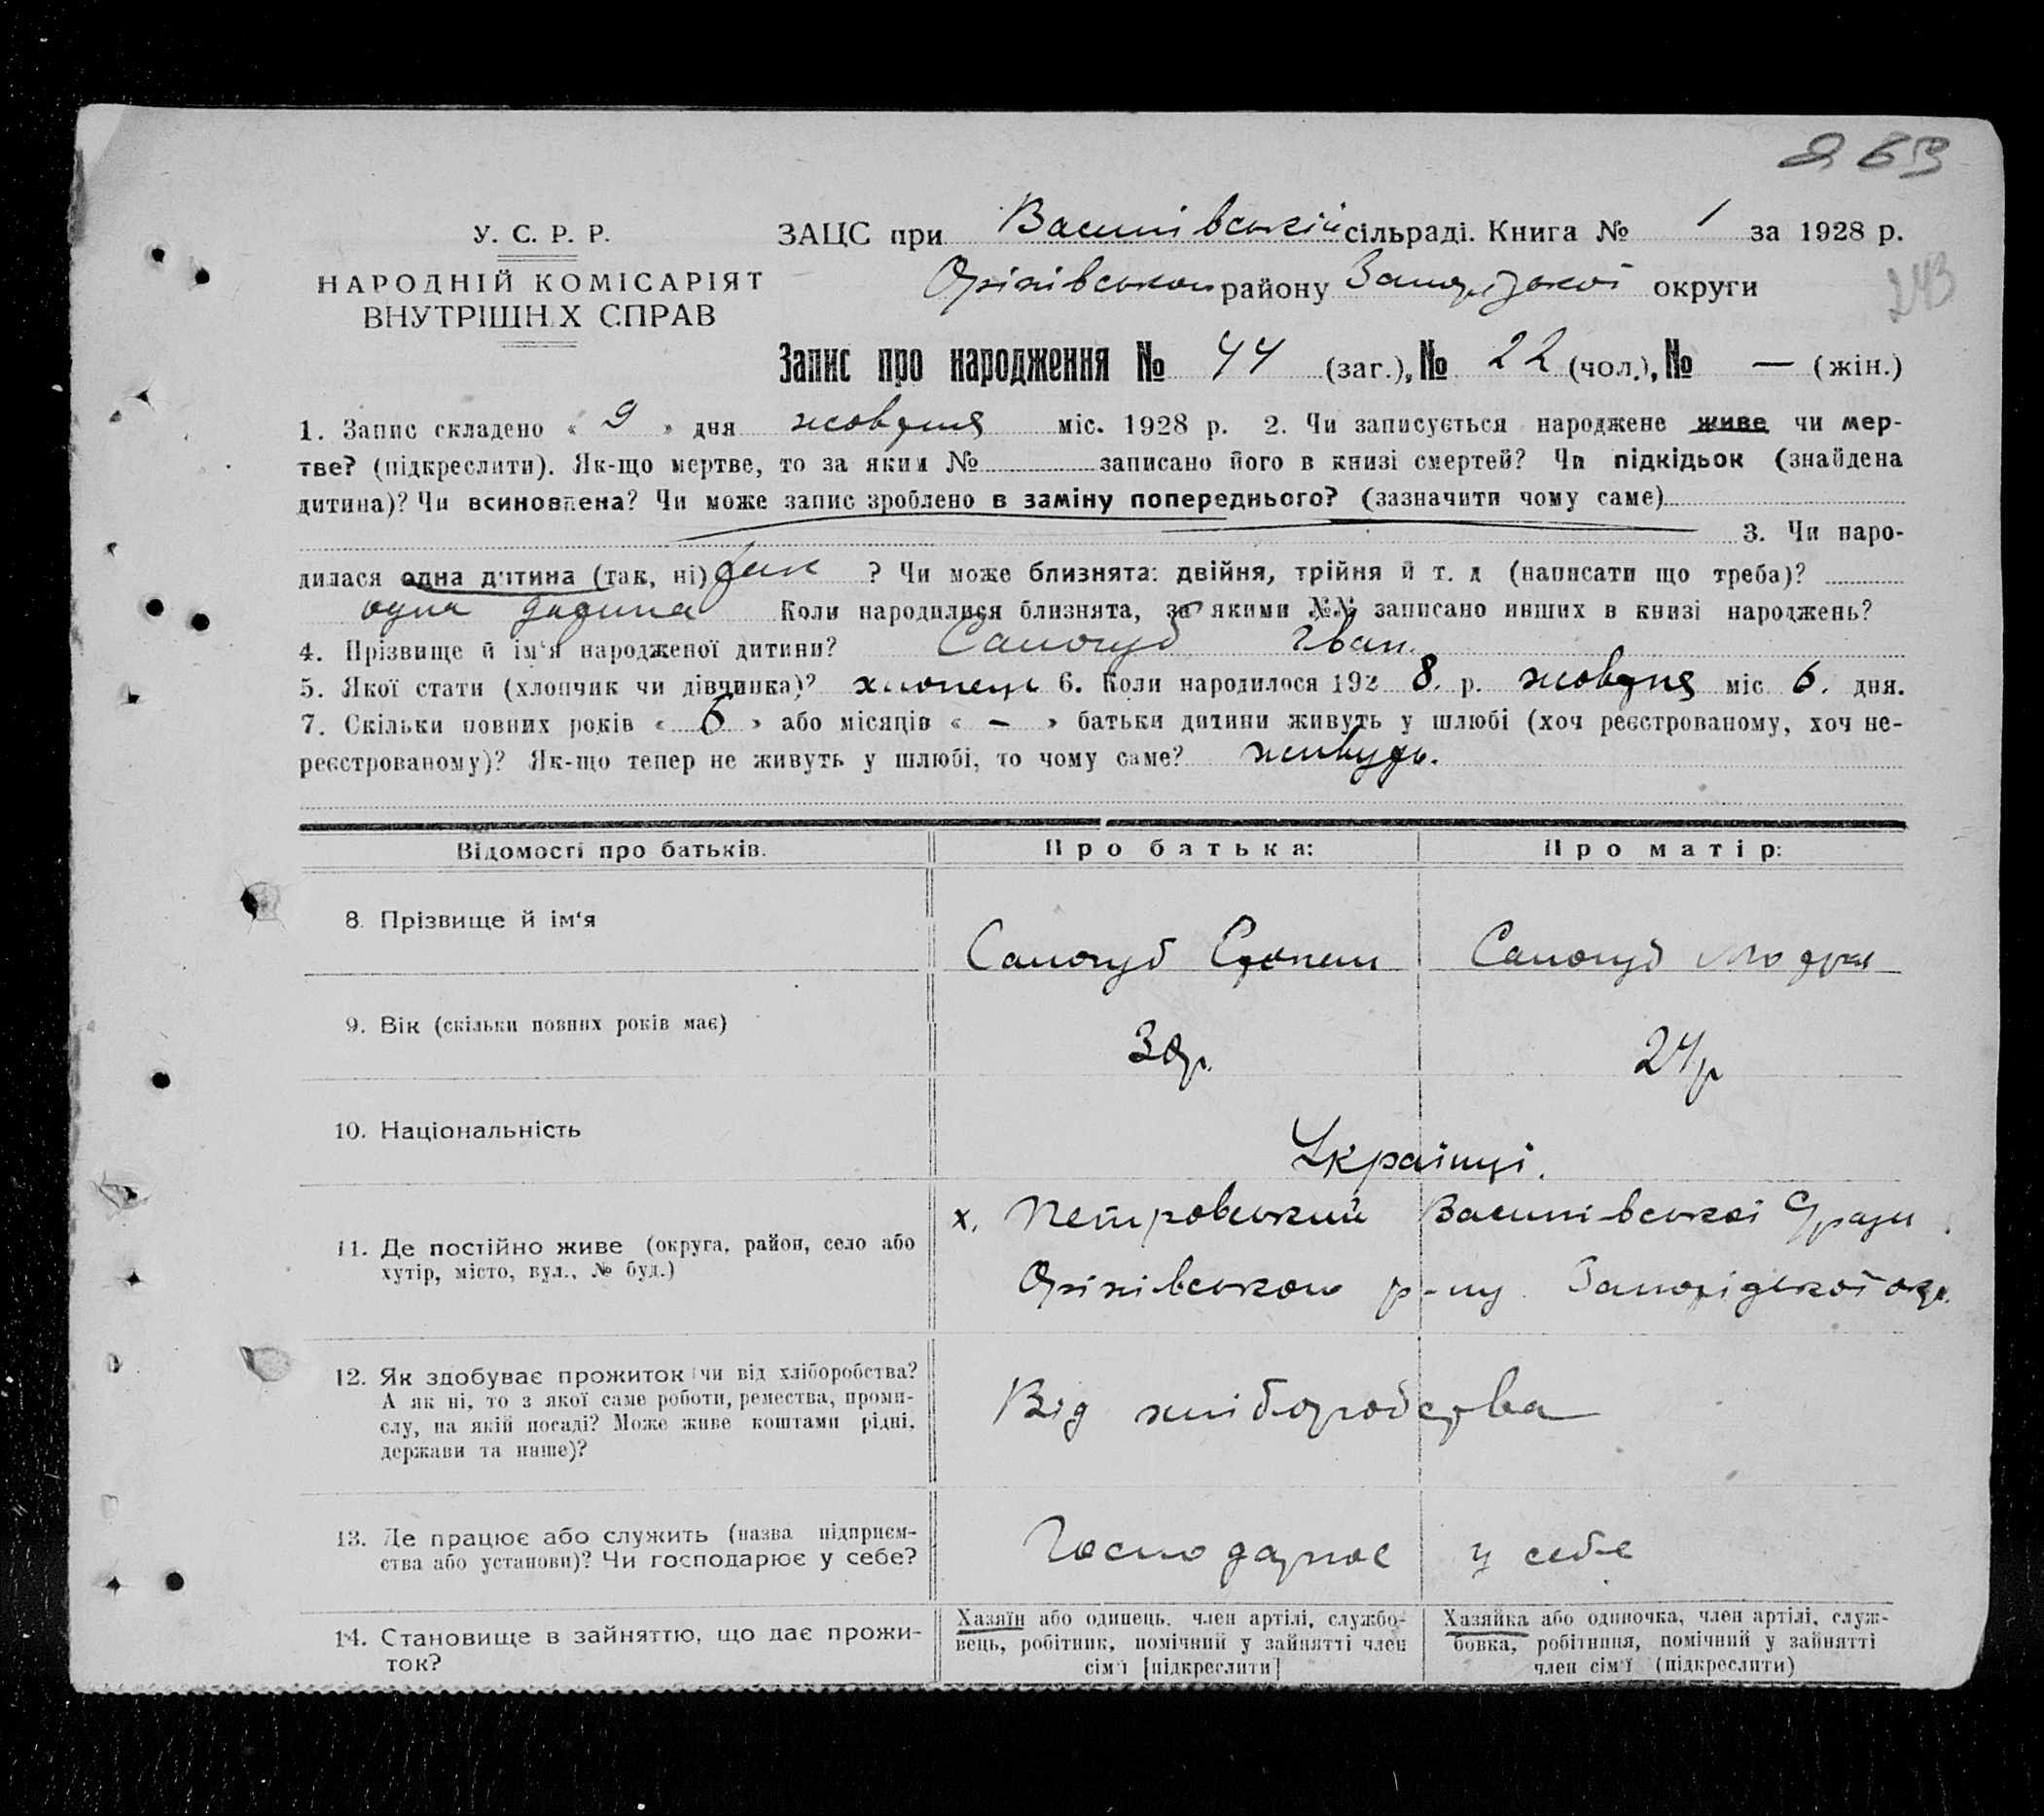 263
У. С. Р. Р.
НАРОДНІЙ КОМІСАРІЯТ
ВНУТРІШН.Х СПРАВ
ЗАЦС при Василівській сільраді. Книга № 1 за 1928 р.
Оріхівського району Запорізької округи
243
Запис про народження № 44 (заг.), № 22 (чол.), № — (жін.)
1. Запис складено « 9 » дня жовтня міс. 1928 р. 2. Чи записується народжене живе чи мер-
тве? (підкреслити). Як-що мертве, то за яким № записано його в книзі смертей? Чи підкідьок (знайдена
дитина)? Чи всиновлена? Чи може запис зроблено в заміну попереднього? (зазначити чому саме)
3. Чи наро-
дилася одна дитина (так, ні) так ? Чи може близнята: двійня, трійня й т. д (написати що треба)?
одна дитина Коли народилися близнята, за якими №№ записано инших в книзі народжень?
4. Прізвище й ім'я народженої дитини? Самогуб Іван.
5. Якої стати (хлопчик чи дівчинка)? хлопець 6. Коли народилося 192 8. р. жовтня міс 6. дня.
7. Скільки повних років « 6 » або місяців « – » батьки дитини живуть у шлюбі (хоч реєстрованому, хоч не-
реєстрованому)? Як-що тепер не живуть у шлюбі, то чому саме? живуть.
Відомості про батьків. Про батька: Про матір:
8. Прізвище й ім'я Самогуб Самогуб
9. Вік (скільки повних років має) 24р
10. Національність Українці.
11. Де постійно живе (округа, район, село або
хутір, місто, вул., № буд.)
х. Петровський Василівської С/ради
Оріхівського р-ну Запорізької окр.
12. Як здобуває прожиток (чи від хліборобства?
А як ні, то з якої саме роботи, ремества, проми-
слу, на якій посаді? Може живе коштами рідні,
держави та инше)?
Від хліборобства
13. Де працює або служить (назва підприєм-
ства або установи)? Чи господарює у себе?
Господарює у себе
14. Становище в зайняттю, що дає прожи-
ток?
Хазяїн або одинець, член артілі, службо-
вець, робітник, помічний у зайнятті член
сім'ї [підкреслити]
Хазяйка або одиночка, член артілі, служ-
бовка, робітниця, помічний у зайнятті
член сім'ї (підкреслити)